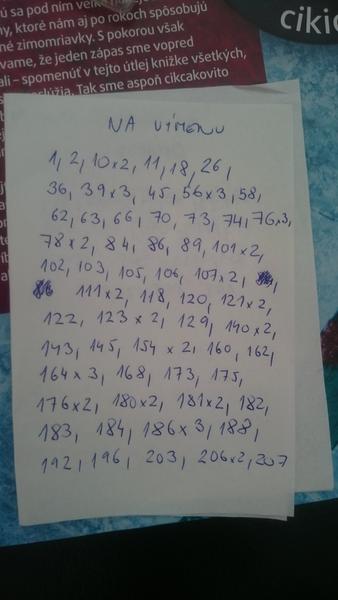 sa pod ním veľk
ktoré nám aj po rokoch spôsobujú
né zimomriavky. S pokorou však
vame, že jeden zápas sme vopred
ali – spomenúť v tejto útlej knižke všetkých,
Tak sme aspoň cikcakovito
cikic
NA VÝMENU
1, 2, 10x2, 11, 18, 26,
36, 39x3, 45, 56x3, 58,
62, 63, 66, 70, 73, 74, 76x3,
78x2, 84, 86, 89, 101x2,
102, 103, 105, 106, 107x2,
111x2, 118, 120, 121x2,
122, 123x2, 129, 140x2,
143, 145, 154x2, 160, 162,
164x3, 168, 173, 175,
176x2, 180x2, 181x2, 182,
183, 184, 186x3, 188,
192, 196, 203, 206x2, 207